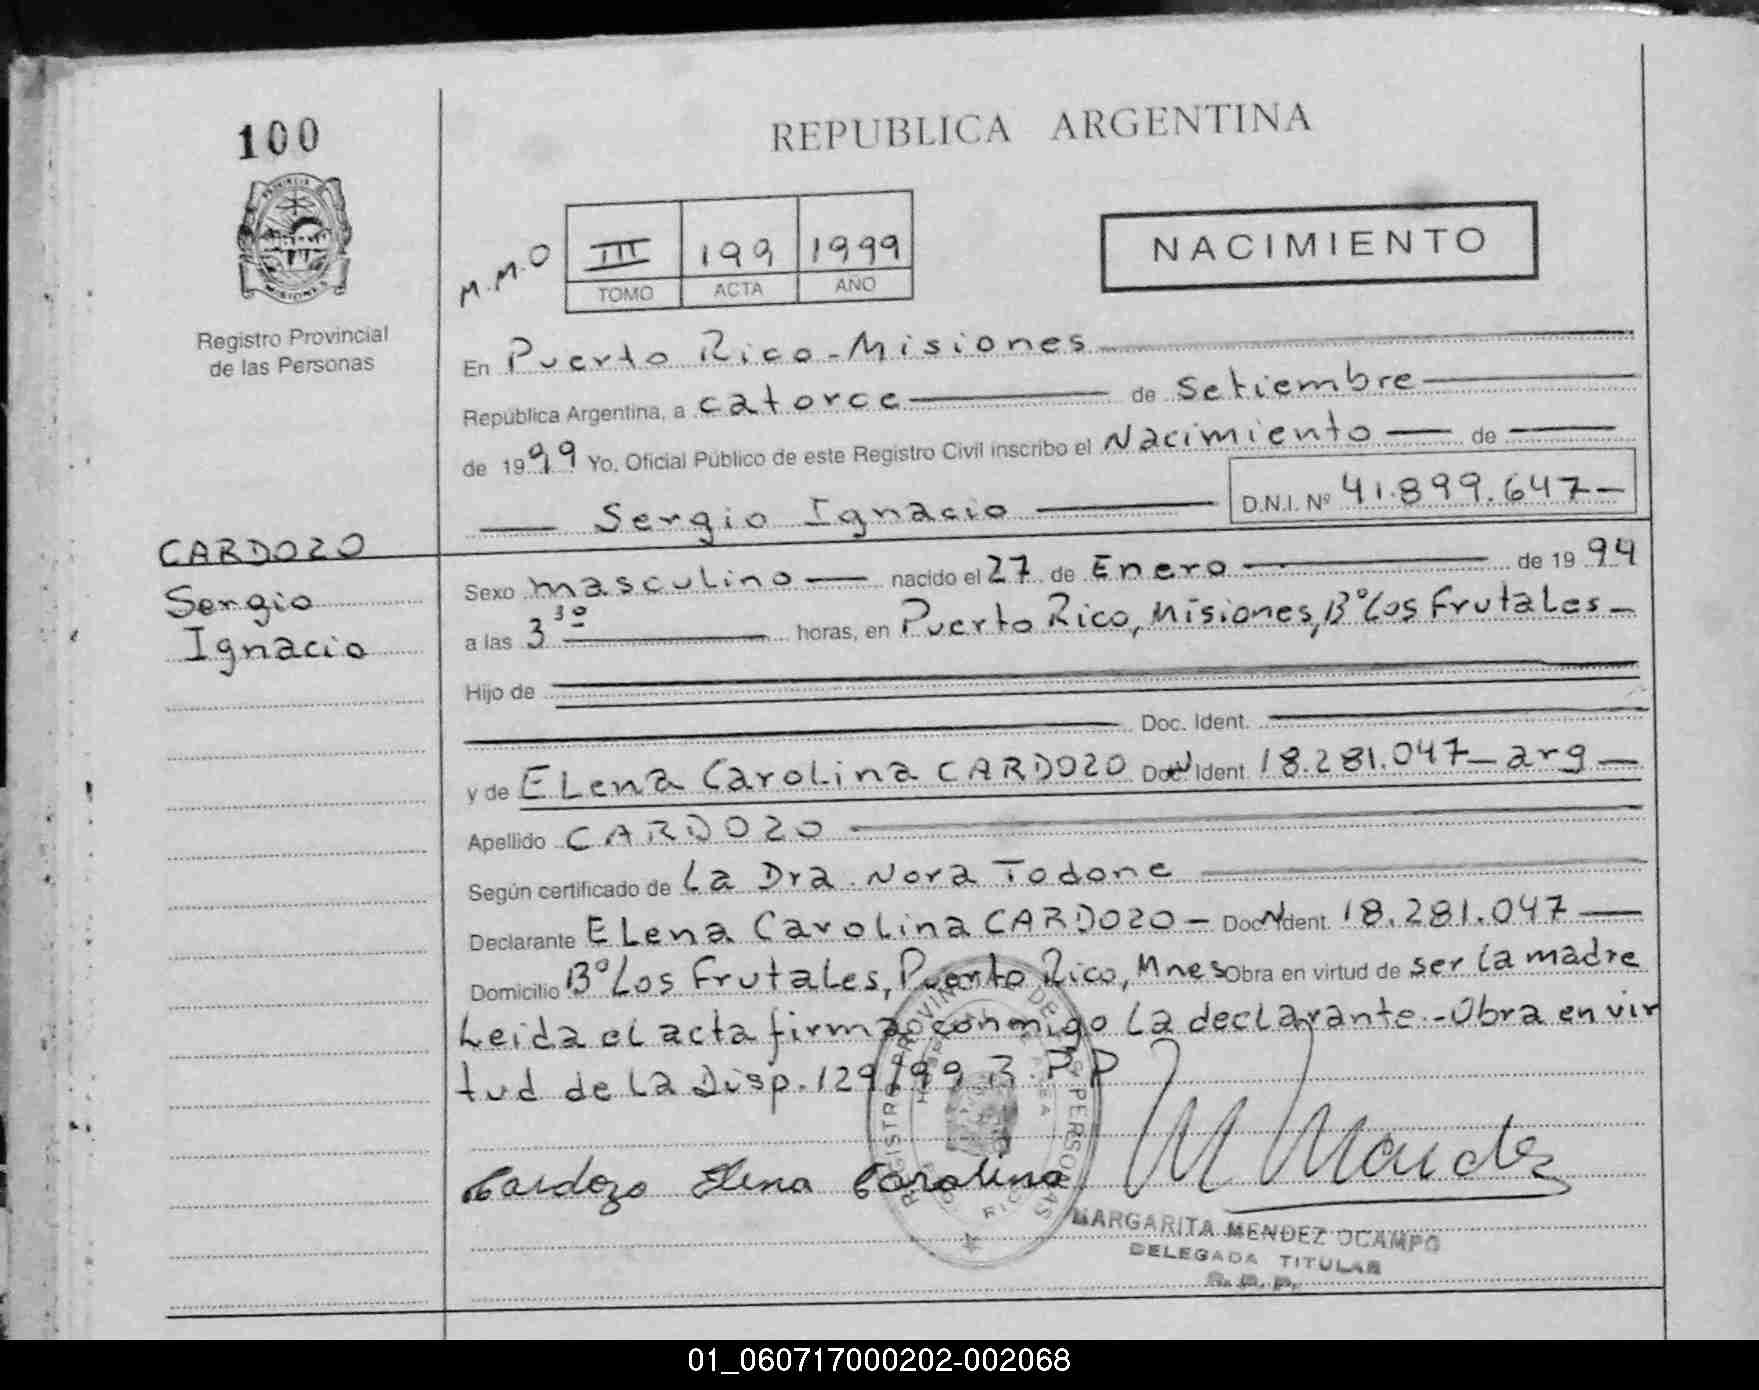 100
REPUBLICA ARGENTINA
PROVINCIA
MISIONES
Registro Provincial
de las Personas
M.M.O
III 199 1999
TOMO ACTA AÑO
NACIMIENTO
En Puerto Rico-Misiones
República Argentina, a catorce de Setiembre
de 1999 Yo, Oficial Público de este Registro Civil inscribo el Nacimiento de
Sergio Ignacio D.N.I. Nº 41.899.647-
CARDOZO
Sergio
Ignacio
Sexo masculino nacido el 27 de Enero de 1994
a las 3 30 horas, en Puerto Rico, Misiones, Bº Los Frutales-
Hijo de
Doc. Ident.
y de ELena CaroLina CARDOZO Doc. Ident. 18.281.047-arg-
Apellido CARDOZO
Según certificado de La Dra. Nora Todone
Declarante ELena CaroLina CARDOZO- Doc. Ident. 18.281.047
Domicilio Bº Los FrutaLes, Puerto Rico, Mnes Obra en virtud de ser La madre
Leida eL acta firma conmigo La decLarante.-Obra en vir
tud de La Disp. 129/99 R.P.P
Cardozo Elena Carolina
M Mendez
REGISTRO PROVINCIAL DE LAS PERSONAS
MARGARITA MENDEZ OCAMPO
DELEGADA TITULAR
R. P. P.
01_060717000202-002068